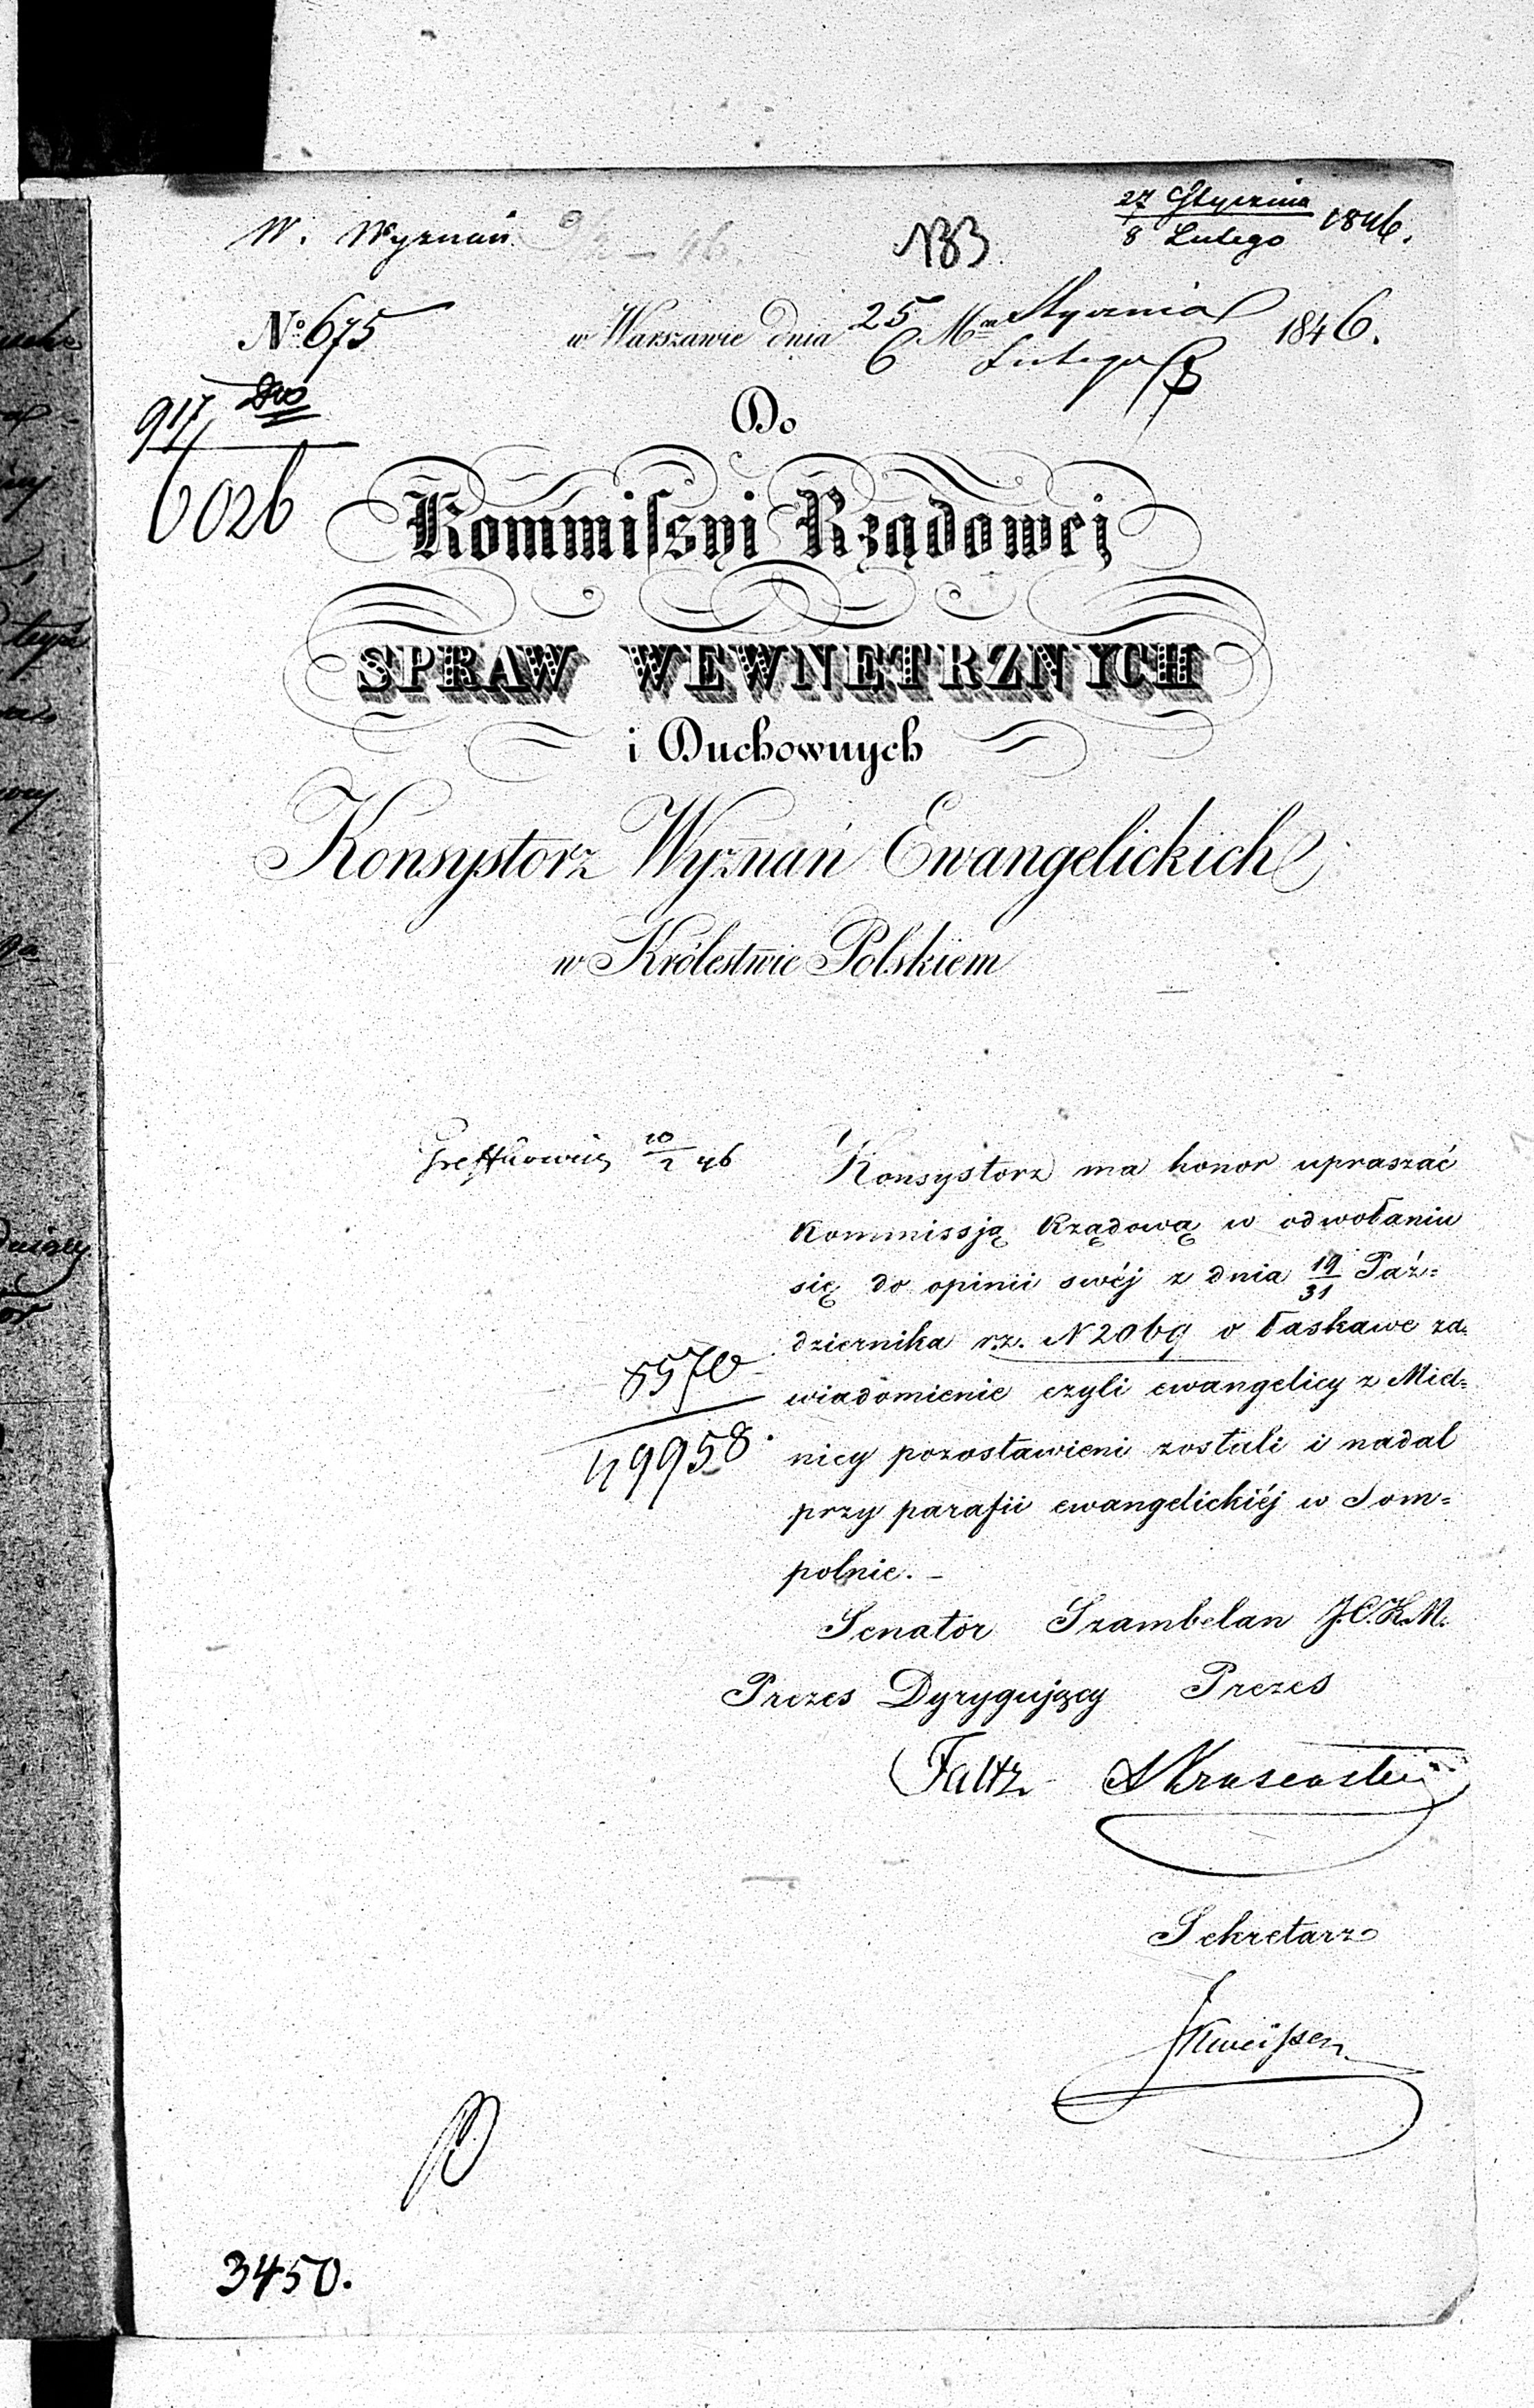 W. Wyznań 9/2 – 46.
133
27 Stycznia
8 Lutego 1846.
No. 675
w Warszawie dnia 25 Mca Stycznia 1846.
6 Lutego
917
6026
Do
Kommissyi Rządowej
SPRAW WEWNETRZNYCH
i Duchownych
Konsystorz Wyznań Ewangelickich
w Królestwie Polskiem
10/2 46
Konsystorz ma honor upraszać
Kommissją Rządową w odwołaniu
się do opinii swéj z dnia 19/31 Paź=
dziernika r.z. N 2069 o łaskawe za=
wiadomienie czyli ewangelicy z Mied=
nicy pozostawieni zostali i nadal
przy parafii ewangelickiéj w Som=
polnie. –
8570
49958
Senator Szambelan J.C.K.M.
Prezes Dyrygujący Prezes
Faltz
Sekretarz
3450.